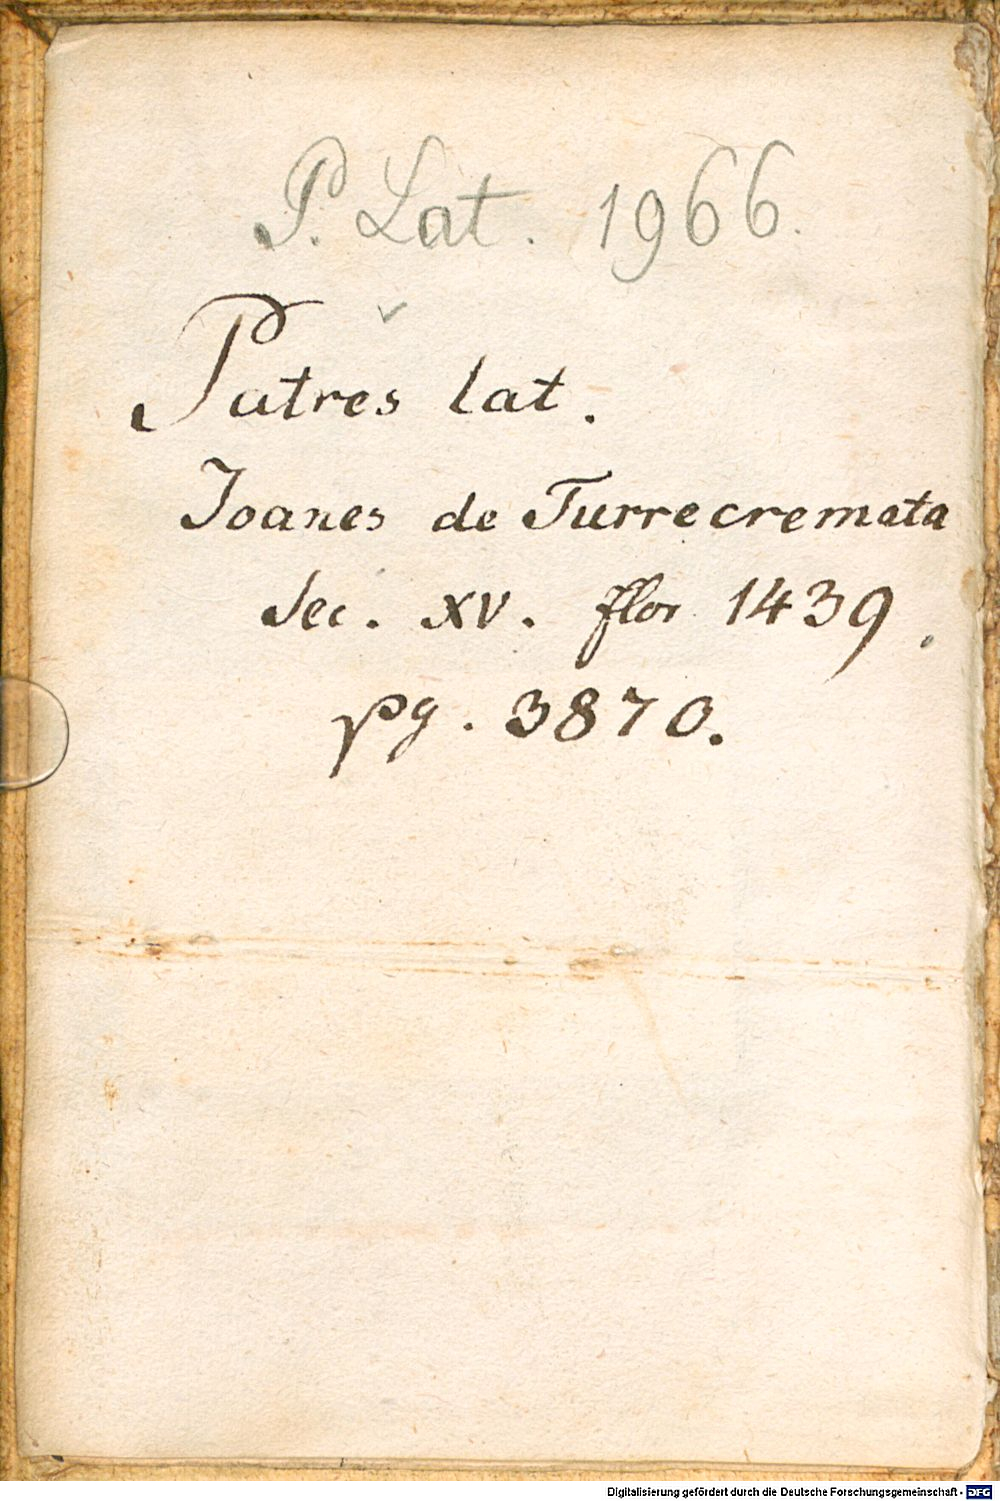 P. Lat. 1966.
Patres lat.
Joanes de Turrecremata
Sec. XV. flor 1439.
pg. 3870.
Digitalisierung gefördert durch die Deutsche Forschungsgemeinschaft - DFG